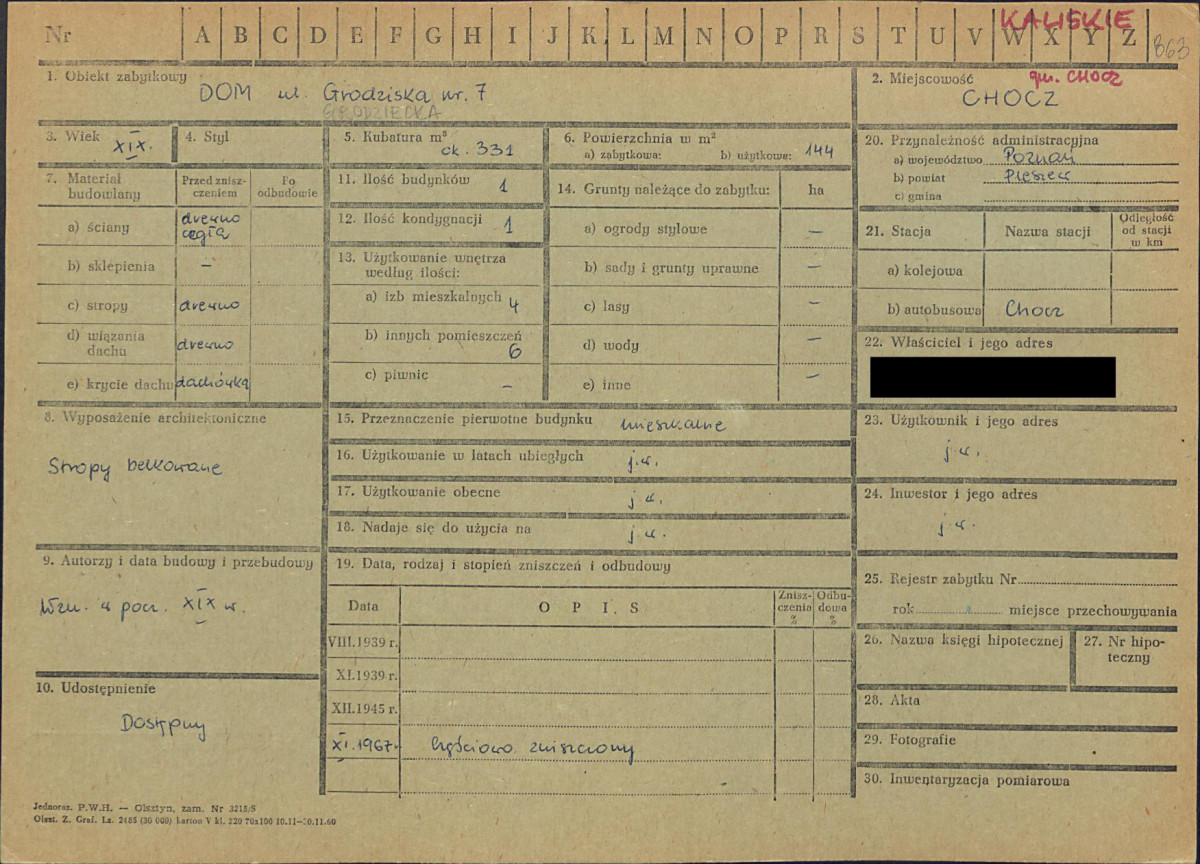 KALISKIE
Nr A B C D E F G H I J K L M N O P R S T U V W X Y Z
863
1. Obiekt zabytkowy
DOM ul. Grodziska nr. 7
GRODZIECKA
2. Miejscowość
gm. CHOCZ
CHOCZ
3. Wiek
XIX.
4. Styl
5. Kubatura m³
ok. 331
6. Powierzchnia w m²
a) zabytkowa: b) użytkowa: 144
20. Przynależność administracyjna
a) województwo Poznań
b) powiat Pleszew
c) gmina
7. Materiał budowlany
Przed zniszczeniem
Po odbudowie
a) ściany drewno cegła
b) sklepienia –
c) stropy drewno
d) wiązania dachu drewno
e) krycie dachu dachówka
11. Ilość budynków 1
12. Ilość kondygnacji 1
13. Użytkowanie wnętrza według ilości:
a) izb mieszkalnych 4
b) innych pomieszczeń 6
c) piwnic –
14. Grunty należące do zabytku: ha
a) ogrody stylowe –
b) sady i grunty uprawne –
c) lasy –
d) wody –
e) inne –
21. Stacja Nazwa stacji Odległość od stacji w km
a) kolejowa
b) autobusowa Chocz
22. Właściciel i jego adres
8. Wyposażenie architektoniczne
Stropy belkowane
15. Przeznaczenie pierwotne budynku mieszkalne
16. Użytkowanie w latach ubiegłych j.w.
17. Użytkowanie obecne j.w.
18. Nadaje się do użycia na j.w.
23. Użytkownik i jego adres
j.w.
24. Inwestor i jego adres
j.w.
9. Autorzy i data budowy i przebudowy
Wzn. w pocz. XIX w.
19. Data, rodzaj i stopień zniszczeń i odbudowy
Data OPIS Zniszczenia % Odbudowa %
VIII.1939 r.
XI.1939 r.
XII.1945 r.
XI.1967r częściowo zniszczony
25. Rejestr zabytku Nr
rok miejsce przechowywania
26. Nazwa księgi hipotecznej
27. Nr hipoteczny
10. Udostępnienie
Dostępny
28. Akta
29. Fotografie
30. Inwentaryzacja pomiarowa
Jednoraz. P.W.H. — Olsztyn, zam. Nr 3215/S
Olszt. Z. Graf. Lz. 2485 (30 000) karton V kl. 220 70x100 10.11—30.11.60